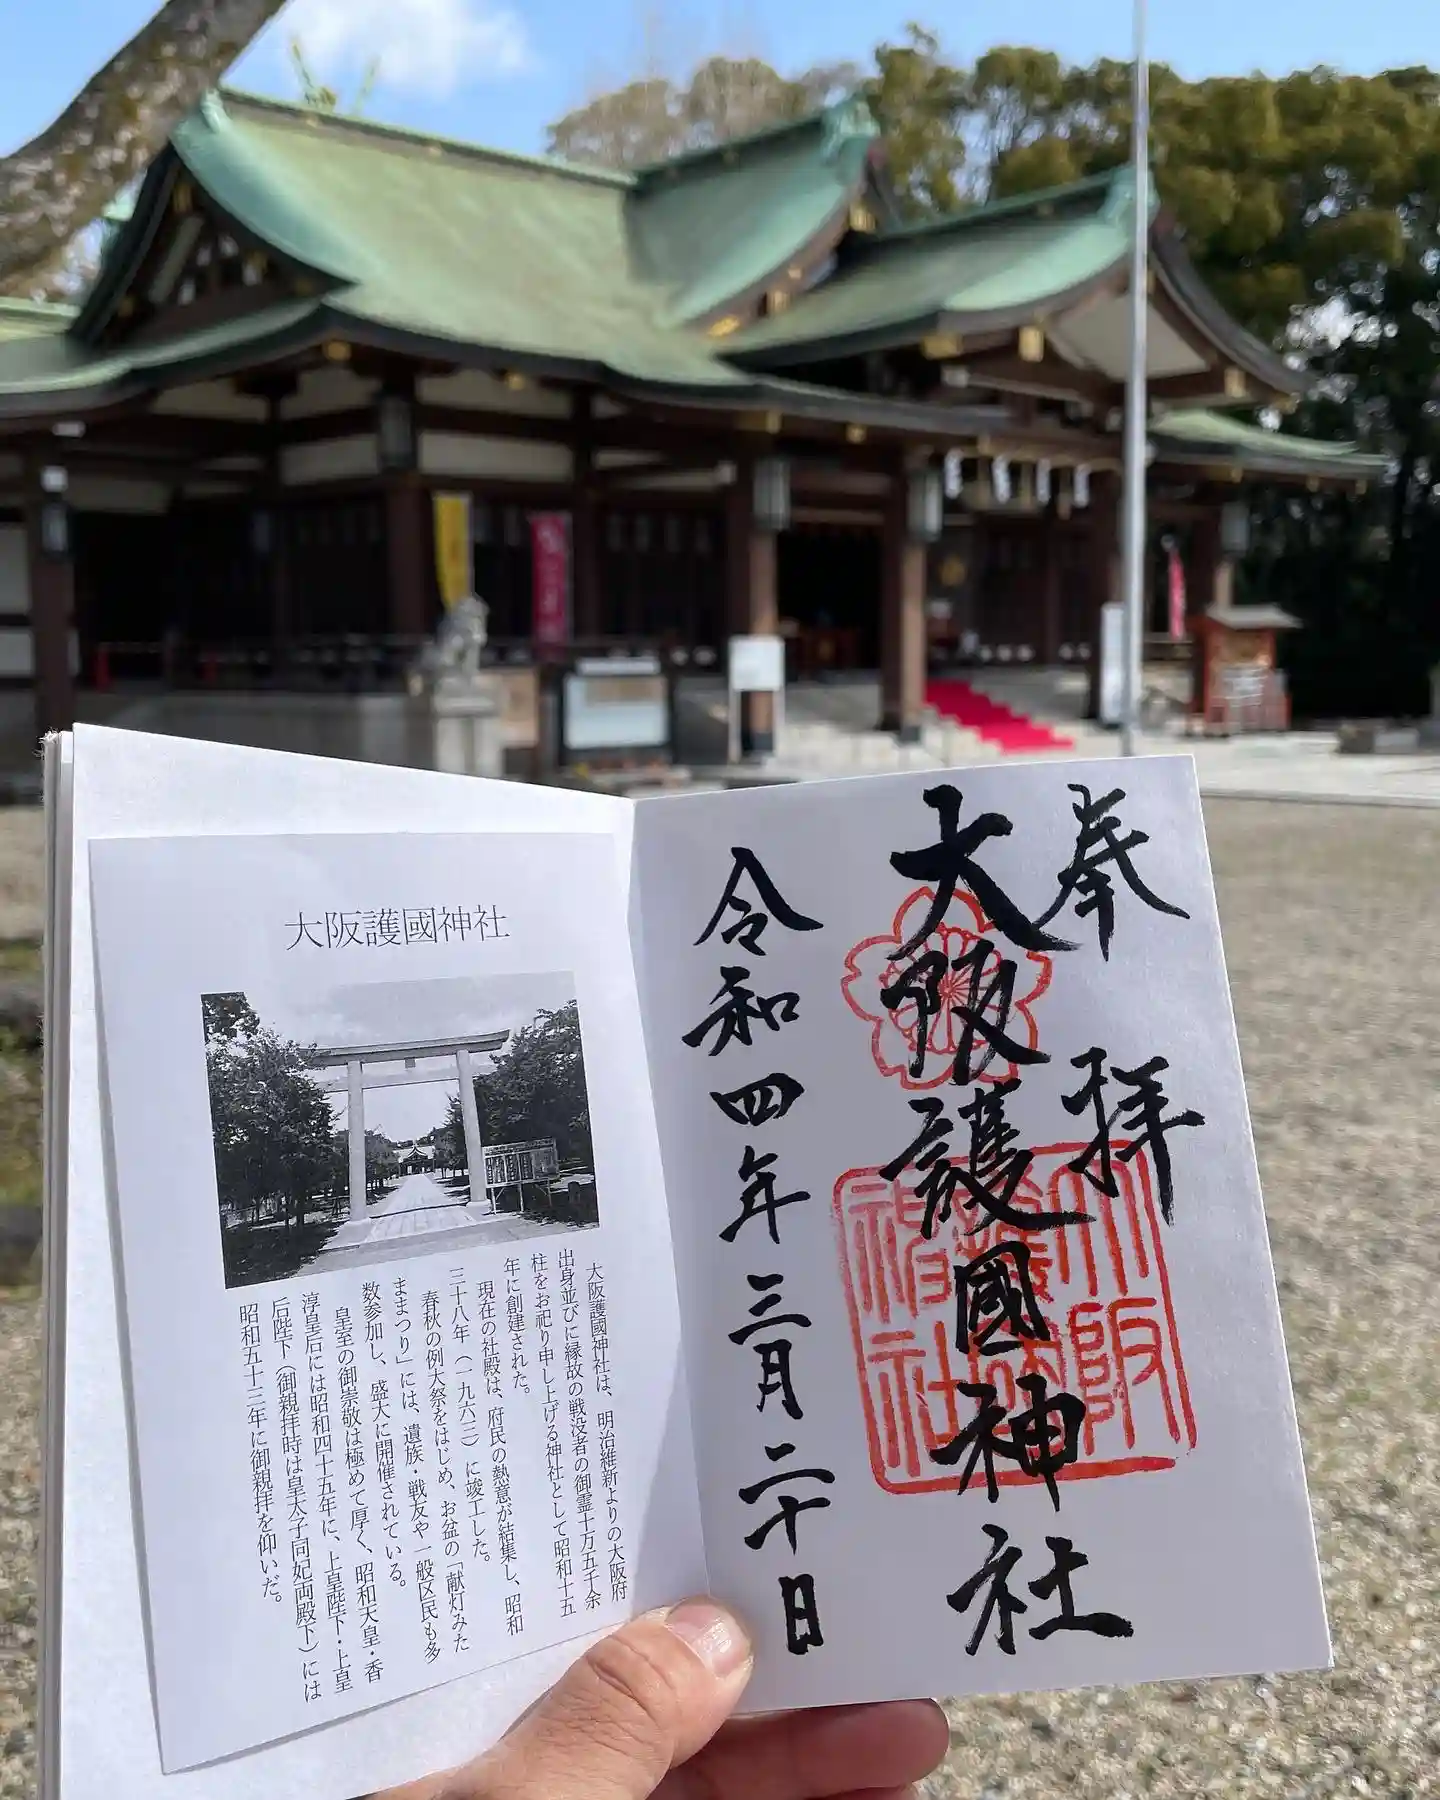 大阪護國神社
大阪護國神社は、明治維新よりの大阪府
出身並びに縁故の戦没者の御霊十万五千余
柱をお祀り申し上げる神社として昭和十五
年に創建された。
現在の社殿は、府民の熱意が結集し、昭和
三十八年（一九六三）に竣工した。
春秋の例大祭をはじめ、お盆の「献灯みた
ままつり」には、遺族・戦友や一般区民も多
数参加し、盛大に開催されている。
皇室の御崇敬は極めて厚く、昭和天皇・香
淳皇后には昭和四十五年に、上皇陛下・上皇
后陛下（御親拝時は皇太子同妃両殿下）には
昭和五十三年に御親拝を仰いだ。
奉拝
大阪護國神社
令和四年三月二十日